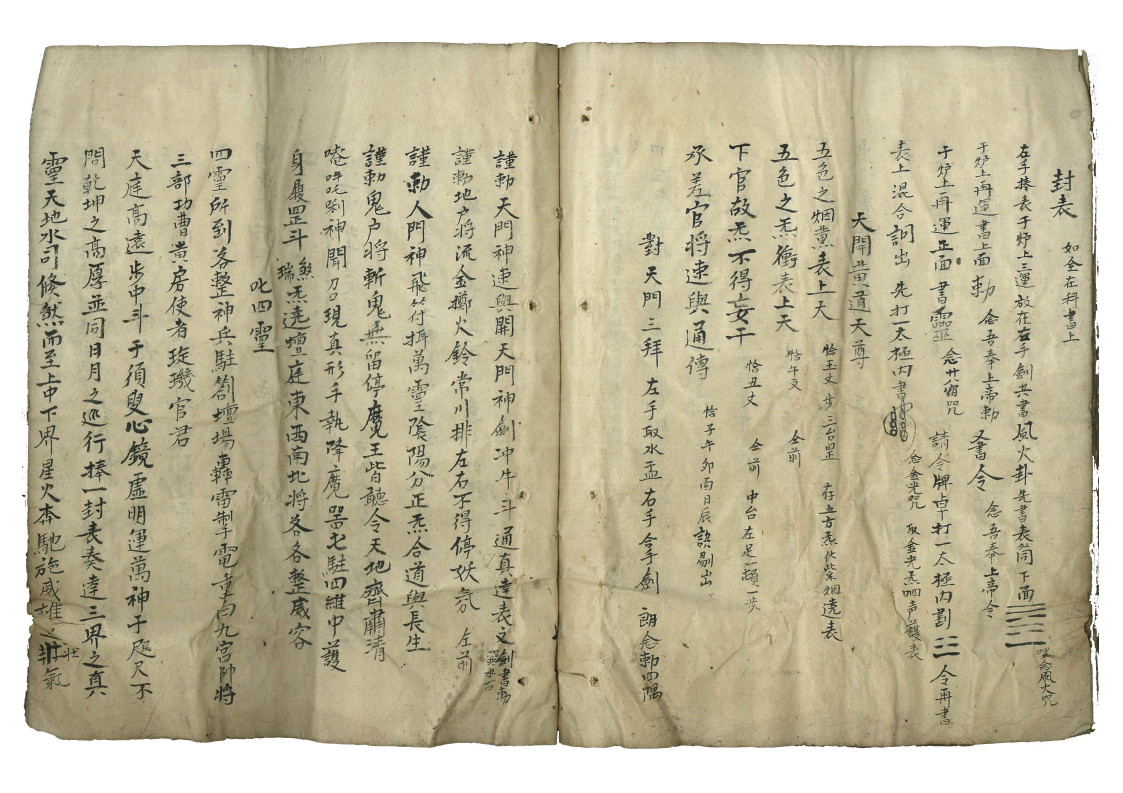 封表 如全在科書上
左手捧表于炉上三運放在右手劍共書風火卦先書表筒下面 念風火咒
于炉上再運書上面 勅 念吾奉上帝勅 又書令 念吾奉上帝令
于炉上再運正面書靈 念廿八宿咒 請令牌卓打一太極內劃 三三 令再書
表上混合訓出 先打一太極內書 念金光咒 取金光炁呬声護表
天開黃道天尊
五色之烟薰表上天 恰玉文 步三台罡 存五方炁化紫烟遶表
五色之炁衝表上天 恰午文 仝前
下官故炁不得妄干 恰丑文 仝前 中台左足一頓一步
承差官將速與通傳 恰子午卯酉日辰訣剔出
對天門三拜 左手取水盂右手拿劍 朗念勅四隅
謹勅天門神速與開天門神劍冲牛斗通真達表文 劍書勅
謹勅地户將流金擲火鈴常川排左右不得停妖氛 仝前
謹勅人門神飛符揖萬靈陰陽分正炁合道與長生
謹勅鬼户將斬鬼無留停魔王皆聽令天地齊肅清
唵吽吒唎神聞刀現真形手執降魔噐屯駐四維中護
身履罡斗煞瑞炁遶壇庭東西南北將各各整威容
叱四靈
四靈所到各整神兵駐劄壇場轟雷制電重向九宮師將
三部功曹黃房使者璇璣官君
天庭高遠步中斗于須臾心鏡虛明運萬神于咫尺不
問乾坤之高厚並同日月之巡行捧一封表奏達三界之真
靈天地水司倏然而至上中下界星火奔馳施威雄之壯氣